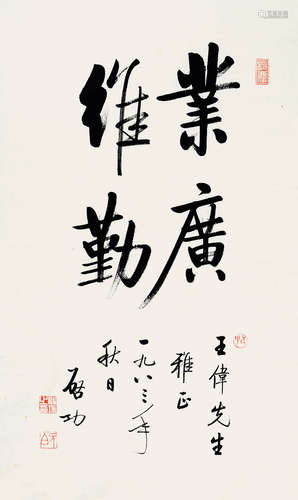 業廣
維勤
王偉先生
雅正
一九八三年
秋日
啓功